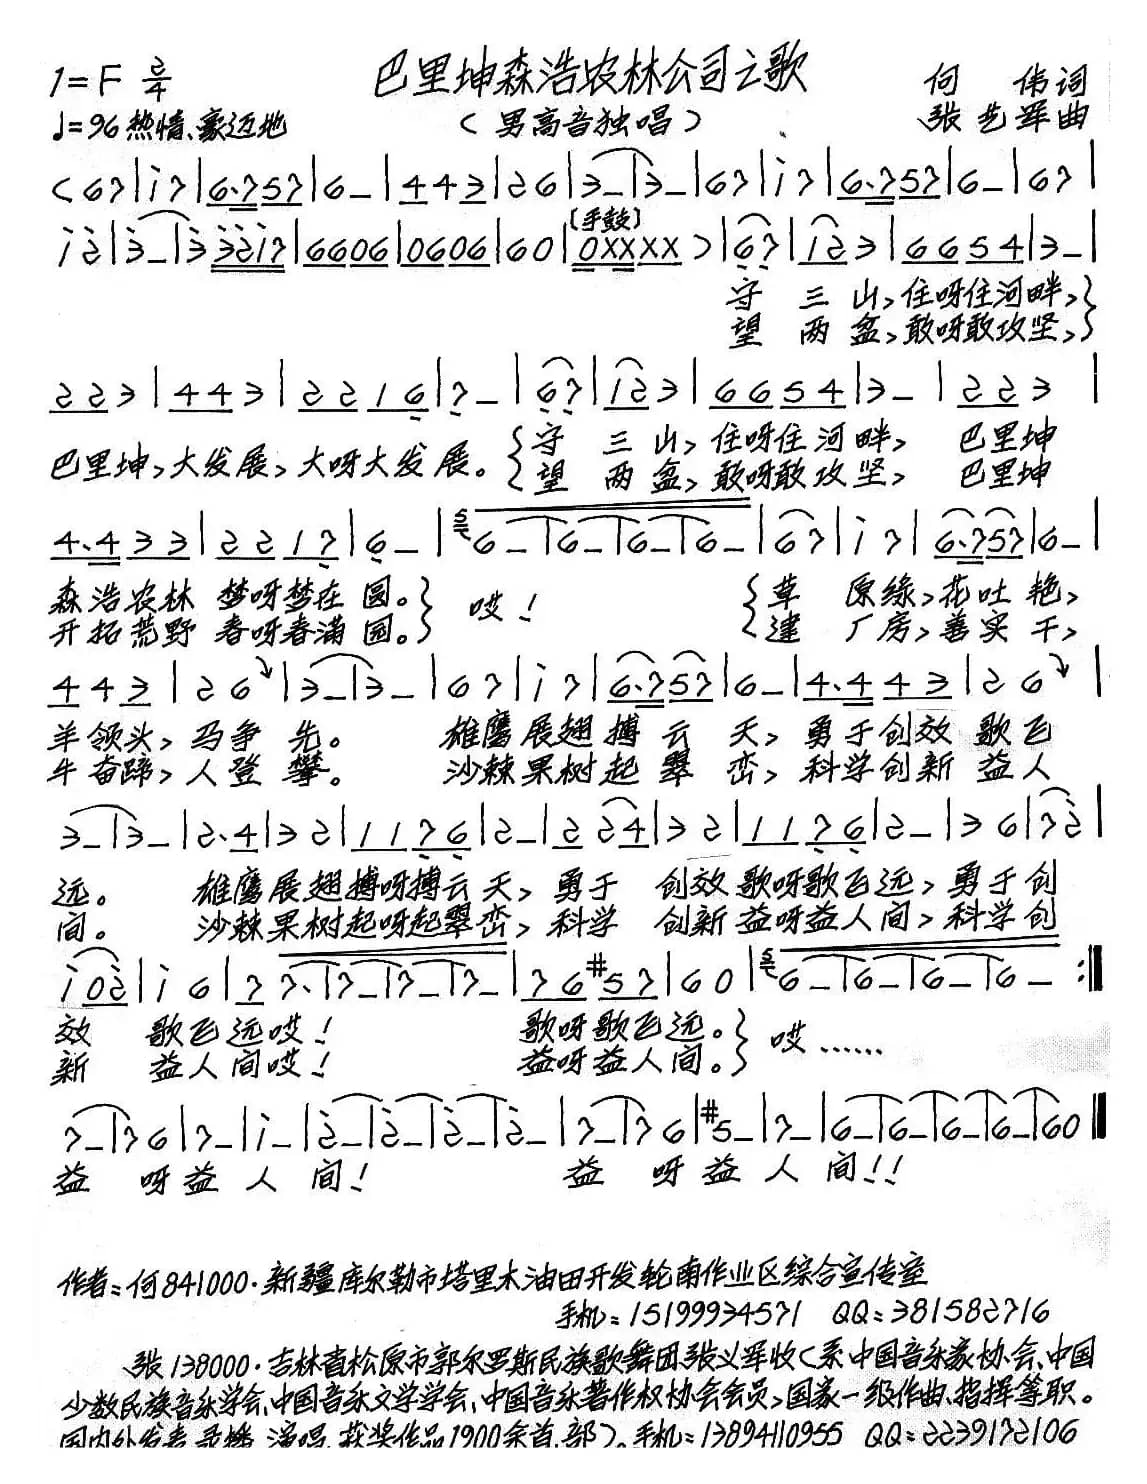 1=F 2/4
巴里坤森浩农林公司之歌
何 伟词
♩=96 热情、豪迈地
（男高音独唱）
张艺军曲
(67|i7|6·757|6_|443|26|3_|3_|67|i7|6·757|6_|67|
i2|3_|3 3217|6606|0606|60|0XXXX)|67|123|6654|3_|
[手鼓]
守 三 山,住呀住河畔,}
望 两 盆,敢呀敢攻坚,}
223|443|2216|7_|67|123|6654|3_|223|
巴里坤,大发展,大呀大发展。{守 三 山,住呀住河畔, 巴里坤
{望 两 盆,敢呀敢攻坚, 巴里坤
4·433|2217|6_|6_|6_|6_|6_|67|i7|6·757|6_|
森浩农林 梦呀梦在 圆。} 哎! {草 原缘,花吐 艳,
开拓荒野 春呀春满 园。} {建 厂房,善实 干,
443|26|3_|3_|67|i7|6·757|6_|4·443|26|
羊领头,马争 先。 雄鹰展翅搏 云 天,勇于创效 歌飞
牛奋蹄,人登 攀。 沙棘果树起 翠 峦,科学创新 益人
3_|3_|2·4|32|1176|2_|224|32|1176|2_|36|72|
远。 雄鹰展翅搏呀搏云天,勇于 创效歌呀歌飞远,勇于创
间。 沙棘果树起呀起翠峦,科学 创新益呀益人间,科学创
i02|i6|77·|7_|7_|7_|76#57|60|6_|6_|6_|6_:‖
效 歌飞远哎! 歌呀歌飞远。} 哎……
新 益人间哎! 益呀益人间。}
7_|76|7_|i_|2_|2_|2_|2_|7_|76|#5_|7_|6_|6_|6_|6_|60‖
益 呀益人 间! 益 呀益人 间!!
作者:何841000·新疆库尔勒市塔里木油田开发轮南作业区综合宣传室
手机:15199934571 QQ:381582716
张138000·吉林省松原市郭尔罗斯民族歌舞团张义军收(系中国音乐家协会、中国
少数民族音乐学会、中国音乐文学学会、中国音乐著作权协会会员,国家一级作曲、指挥等职。
国内外发表、录播、演唱、获奖作品1900余首、部)。手机:13894110955 QQ:2239172106